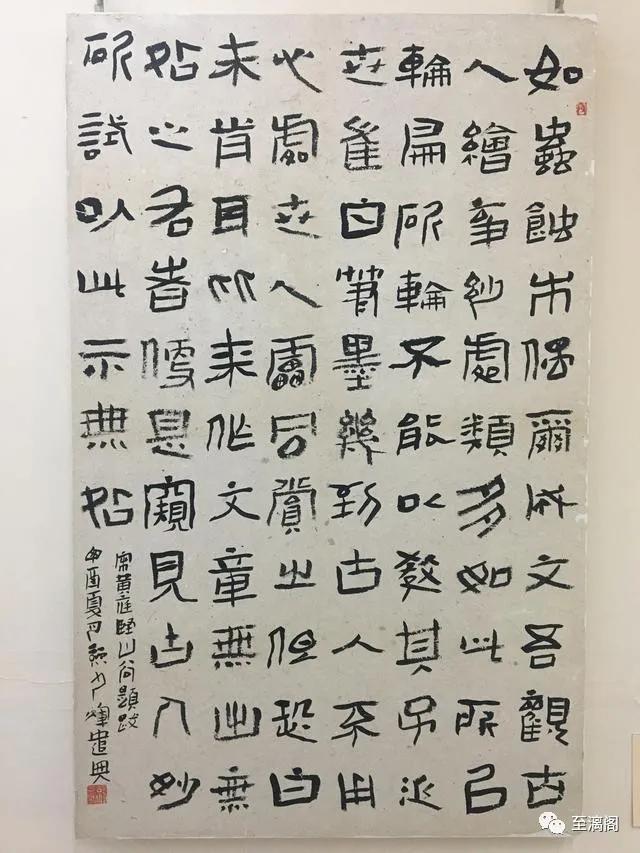 如蟲蝕木偶爾成文吾觀古
人繪事妙處類多如此所以
輪扁斫輪不能以教其子近
世崔白筆墨幾到古人不用
心處世人雷同賞之但恐白
未肯耳比来作文章無出無
咎之右者便是窺見古人妙
斫試以此示無咎
黃庭堅山谷題跋
酉夏月遣興
至漓阁